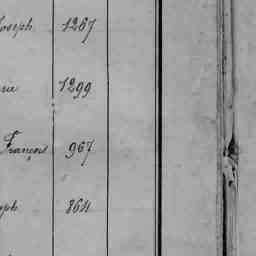 Joseph 1267
1299
François 967
ph 864